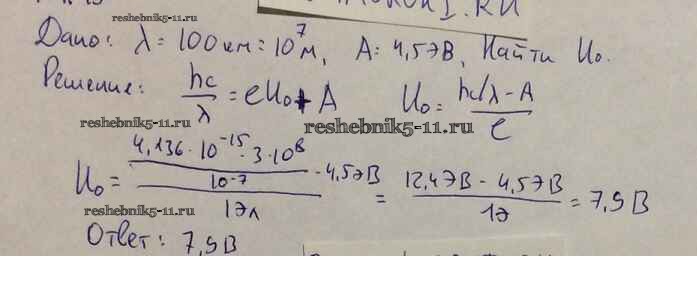 reshebnik5-11.ru
Дано: λ = 100 км = 10⁷ м, A = 4,5 эВ, Найти U₀.
Решение: hc/λ = eU₀ + A U₀ = (hc/λ - A)/e
reshebnik5-11.ru reshebnik5-11.ru
U₀ = ((4,136 · 10⁻¹⁵ · 3 · 10⁸)/10⁻⁷ - 4,5 эВ)/1 эл = (12,4 эВ - 4,5 эВ)/1э = 7,9 В
reshebnik5-11.ru
Ответ: 7,9 В